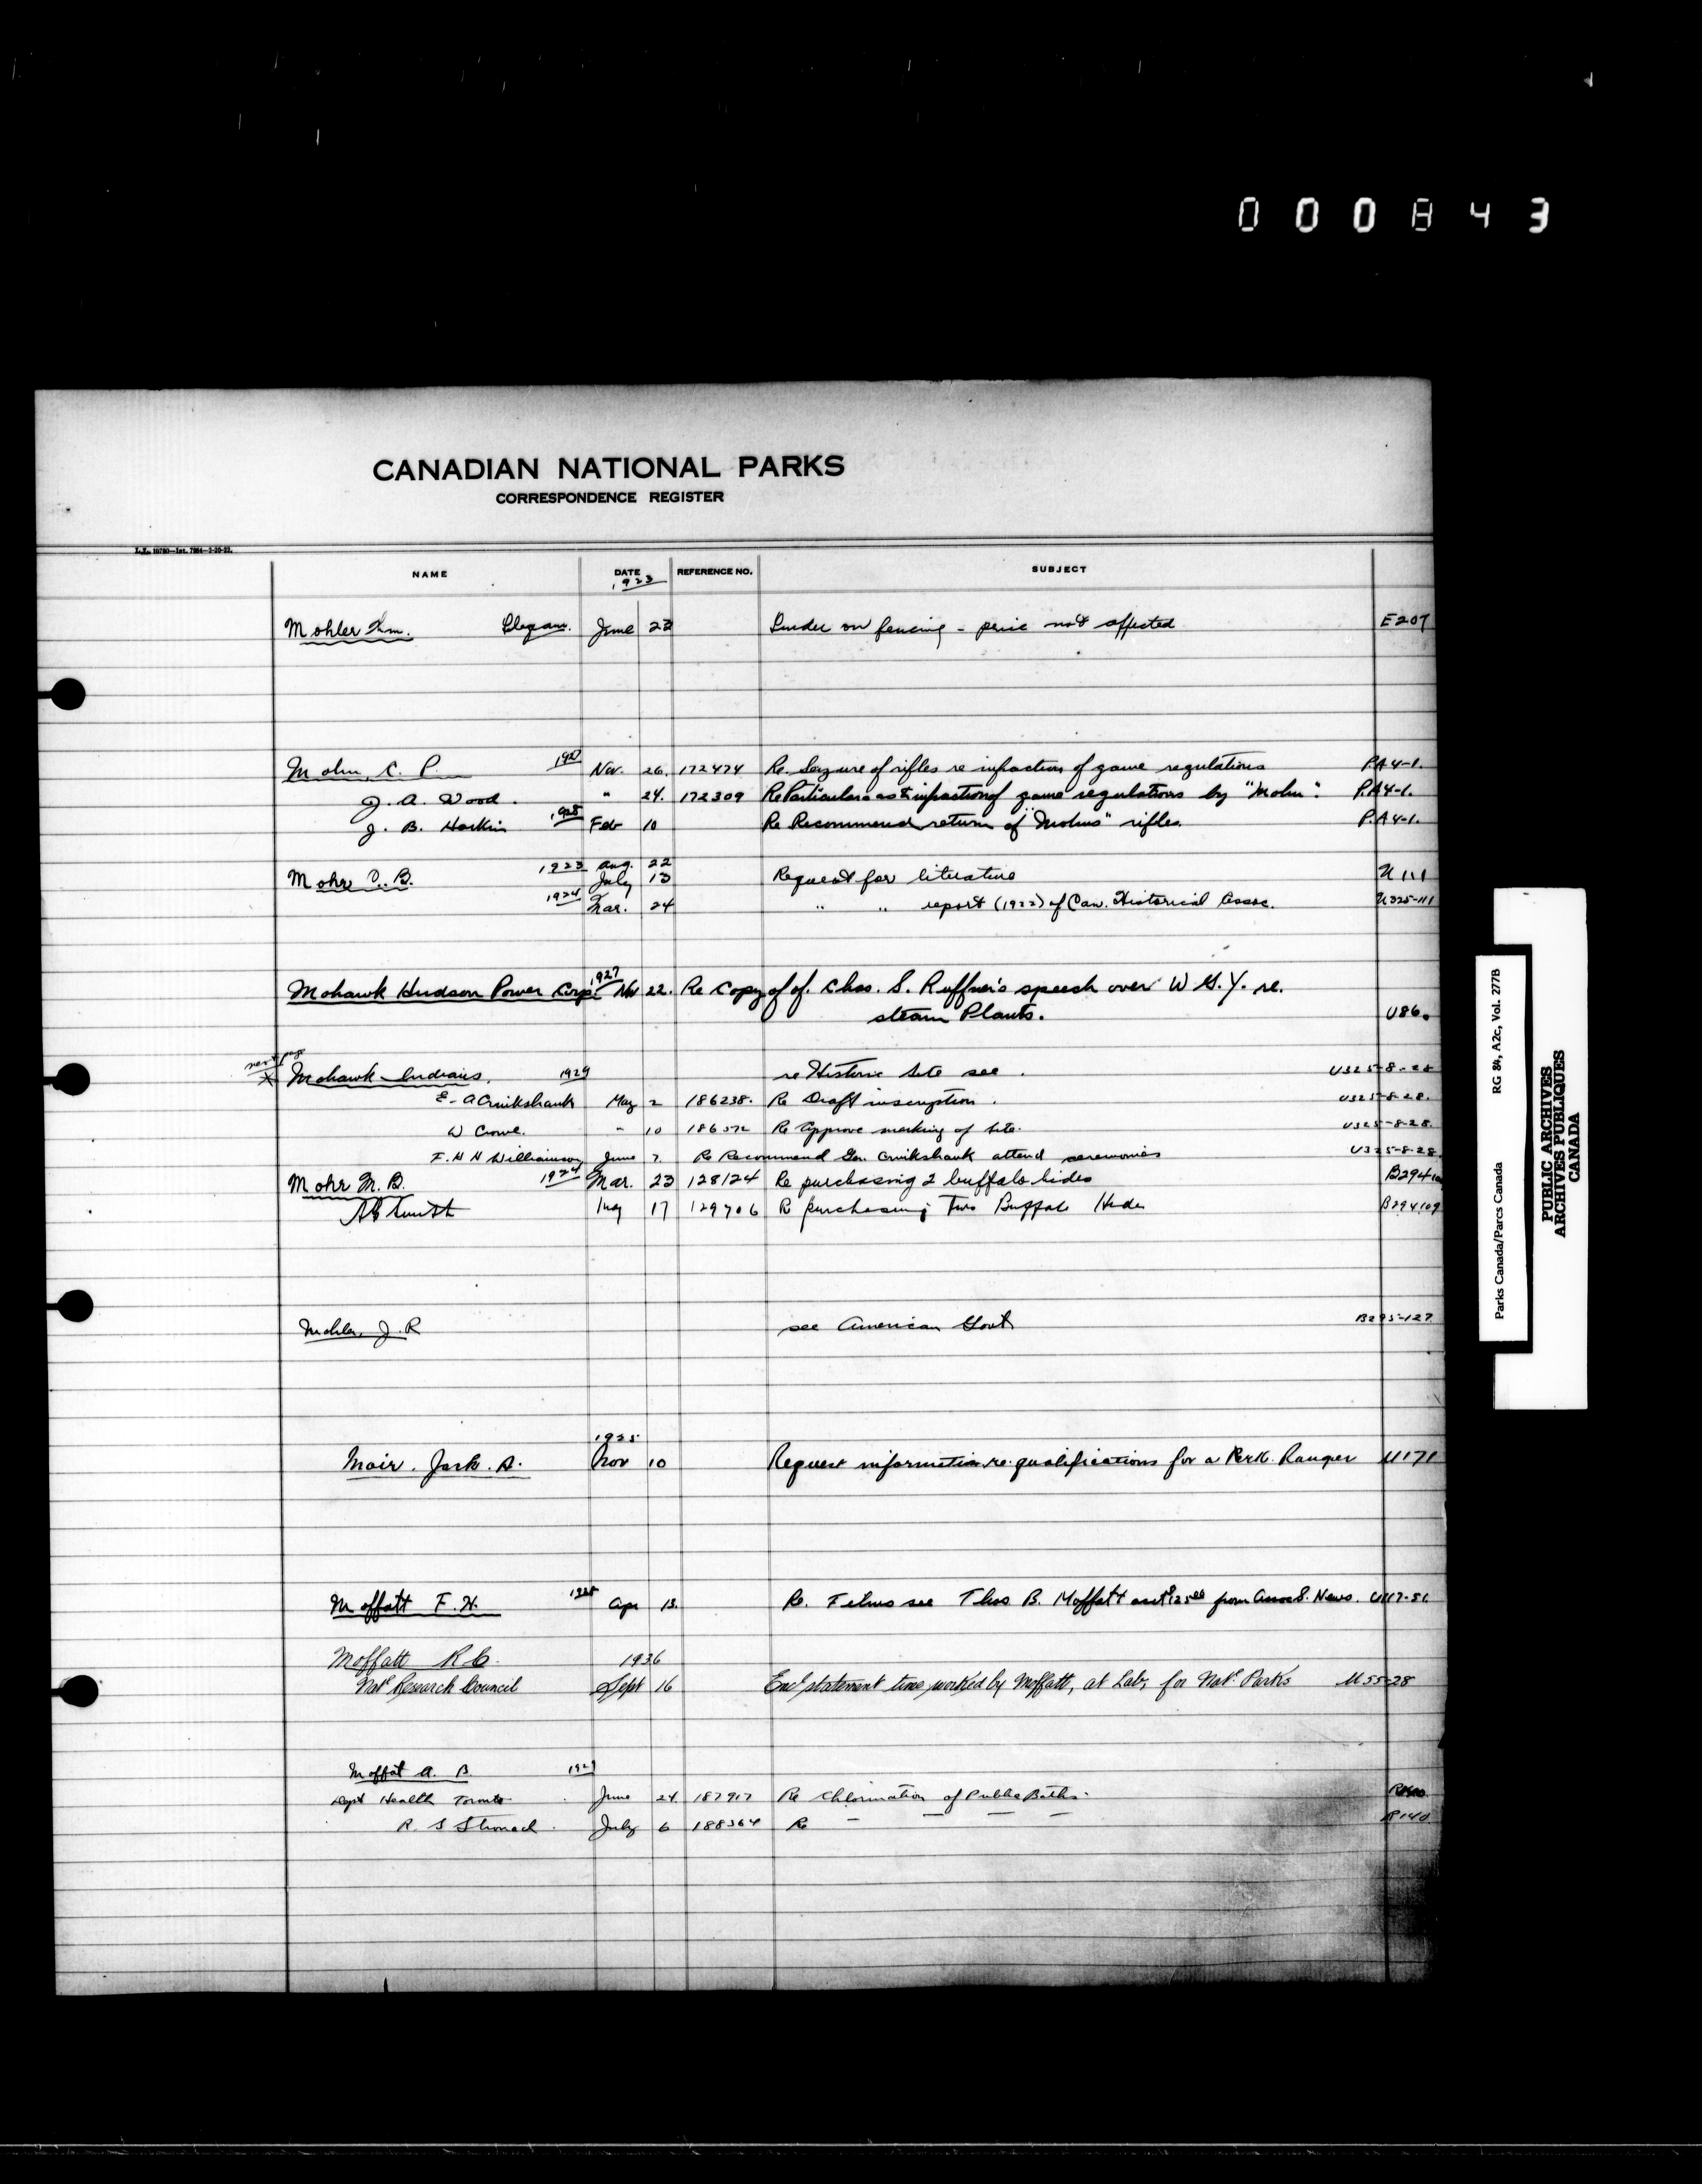 000843
CANADIAN NATIONAL PARKS
CORRESPONDENCE REGISTER
NAME DATE REFERENCE NO. SUBJECT
1923
Mohler Wm. June 23 Tender on fencing - price not affected E207
Mohn, C. P. Nov. 26. 172474 Re. Seizure of rifles re infraction of game regulations P.A4-1.
J. A. Wood. " 24. 172309 Re Particulars as to infraction of game regulations by "Mohn". P.A4-1.
J. B. Harkin 1928 Feb 10 Re Recommend return of "Mohns" rifles. P.A4-1.
1923 Aug. 22
Mohr C. B. July 13 Request for literature U111
1924 Mar. 24 " " report (1922) of Can. Historical Assoc. U325-111
Mohawk Hudson Power Corp. 1927 Nov 22. Re Copy of of. Chas. S. Ruffner's speech over W G.Y. re.
steam Plants. U86.
next page
X Mohawk Indians. 1929 re Historic Site see. U325-8-28
E. A Cruikshank May 2 186238. Re Draft inscription. U325-8-28.
W Crowe. " 10 186572 Re Approve marking of site. U325-8-28.
F. H H Williamson June 7. Re Recommend Gen. Cruikshank attend ceremonies U325-8-28.
Mohr M. B. 1924 Mar. 23 128124 Re purchasing 2 buffalo hides B294
Smith May 17 129706 Re purchasing Two Buffalo Hides B294109
Mohler, J. R see American Govt B295-127
1925
Moir. Jack. A. Nov 10 Request information re. qualifications for a Park. Ranger U171
Moffatt F. H. 1928 Apr 13. Re. Films see Thos. B. Moffatt from Assoc. S. News. U117-51.
Moffatt R C. 1936
Natl Research Council Sept 16 Encl statement time worked by Moffatt, at Lab, for Natl Parks U55-28
Moffat A. B. 1929
Dept Health Toronto June 24. 187917 Re Chlorination of Public Baths.
R. S Stronach. July 6 188364 Re — — — — R140.
Parks Canada/Parcs Canada RG 84, A2c, Vol. 277B
PUBLIC ARCHIVES
ARCHIVES PUBLIQUES
CANADA